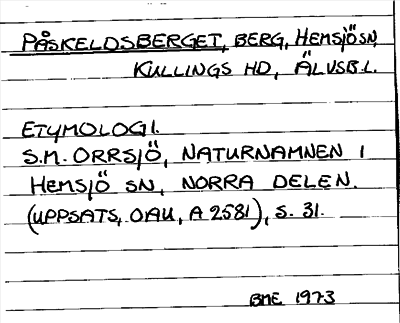 PÅSKELDSBERGET, BERG, HEMSJÖ SN,
KULLINGS HD, ÄLVSB.L.
ETYMOLOGI.
S.M. ORRSJÖ, NATURNAMNEN I
HEMSJÖ SN, NORRA DELEN.
(UPPSATS, OAU, A 2581), S. 31.
BME 1973